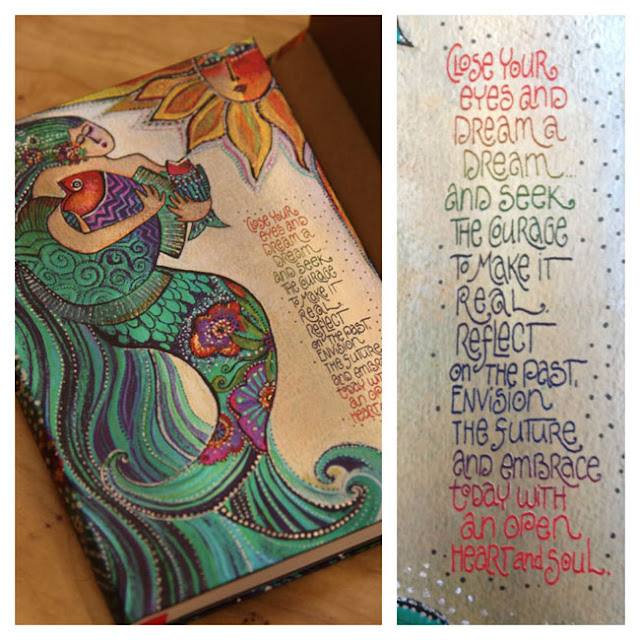 CLOSE YOUR
EYES AND
DREAM a
DREAM
AND SEEK
THE COURAGE
TO MAKE IT
REAL.
REFLECT
on THE PAST,
ENVISION
THE FUTURE
AND
TODAY WITH
an OPEN
HEART
CLOSE YOUR
EYES AND
DREAM a
DREAM...
AND SEEK
THE COURAGE
TO MAKE IT
REAL.
REFLECT
on THE PAST,
ENVISION
THE FUTURE
AND EMBRACE
TODAY WITH
an OPEN
HEART and SOUL.